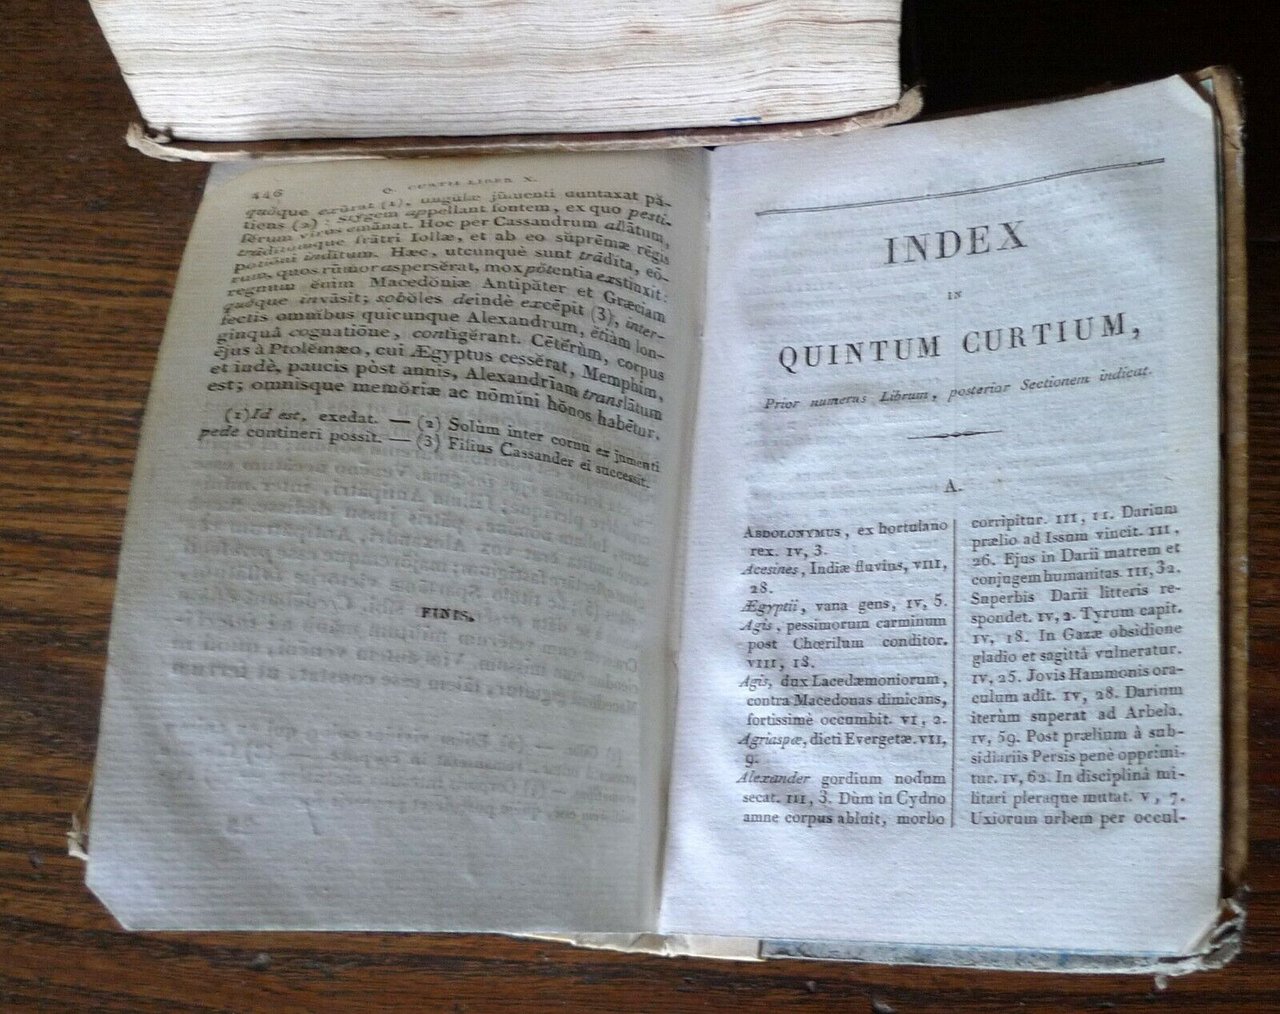 446
Q. CURTII LIBER X.
quŏque exūrat (1), ungulæ jūmenti duntaxat pă-
tiens (2) Stygem appellant fontem, ex quo pesti-
fĕrum virus emānat. Hoc per Cassandrum allātum,
trădĭtumque frātri Iollæ, et ab eo sŭprēmæ rēgis
potiōni indĭtum. Hæc, utcunquè sunt trădita, eō-
rum, quos rūmor aspersĕrat, mox pŏtentia exstinxit:
regnum ĕnim Macedŏniæ Antipăter et Græciam
quŏque invāsit; sobŏles deindè excēpit (3), inter-
fectis omnĭbus quicunque Alexandrum, ĕtiàm lon-
ginquâ cognatiōne, contĭgĕrant. Cētĕrùm, corpus
ējus à Ptolĕmæo, cui Ægyptus cessĕrat, Memphim,
et indè, paucis pòst annis, Alexandrīam translātum
est; omnisque memŏriæ ac nōmini hŏnos habētur.
(1) Id est, exedat. — (2) Solùm inter cornu ex jumenti
pede contineri possit. — (3) Filius Cassander ei successit.
FINIS.
INDEX
IN
QUINTUM CURTIUM,
Prior numerus Librum, posterior Sectionem indicat.
A.
ABDOLONYMUS, ex hortulano
rex. IV, 3.
Acesines, Indiæ fluvius, VIII,
28.
Ægyptii, vana gens, IV, 5.
Agis, pessimorum carminum
post Chœrilum conditor.
VIII, 18.
Agis, dux Lacedæmoniorum,
contra Macedonas dimicans,
fortissimè occumbit. VI, 2.
Agriaspæ, dicti Evergetæ. VII,
9.
Alexander gordium nodum
secat. III, 3. Dùm in Cydno
amne corpus abluit, morbo
corripitur. III, 11. Darium
prælio ad Issum vincit. III,
26. Ejus in Darii matrem et
conjugem humanitas. III, 32.
Superbis Darii litteris re-
spondet. IV, 2. Tyrum capit.
IV, 18. In Gazæ obsidione
gladio et sagittâ vulneratur.
IV, 25. Jovis Hammonis ora-
culum adit. IV, 28. Darium
iterùm superat ad Arbela.
IV, 59. Post prælium à sub-
sidiariis Persis penè opprimi-
tur. IV, 62. In disciplinâ mi-
litari pleraque mutat. V, 7.
Uxiorum urbem per occul-